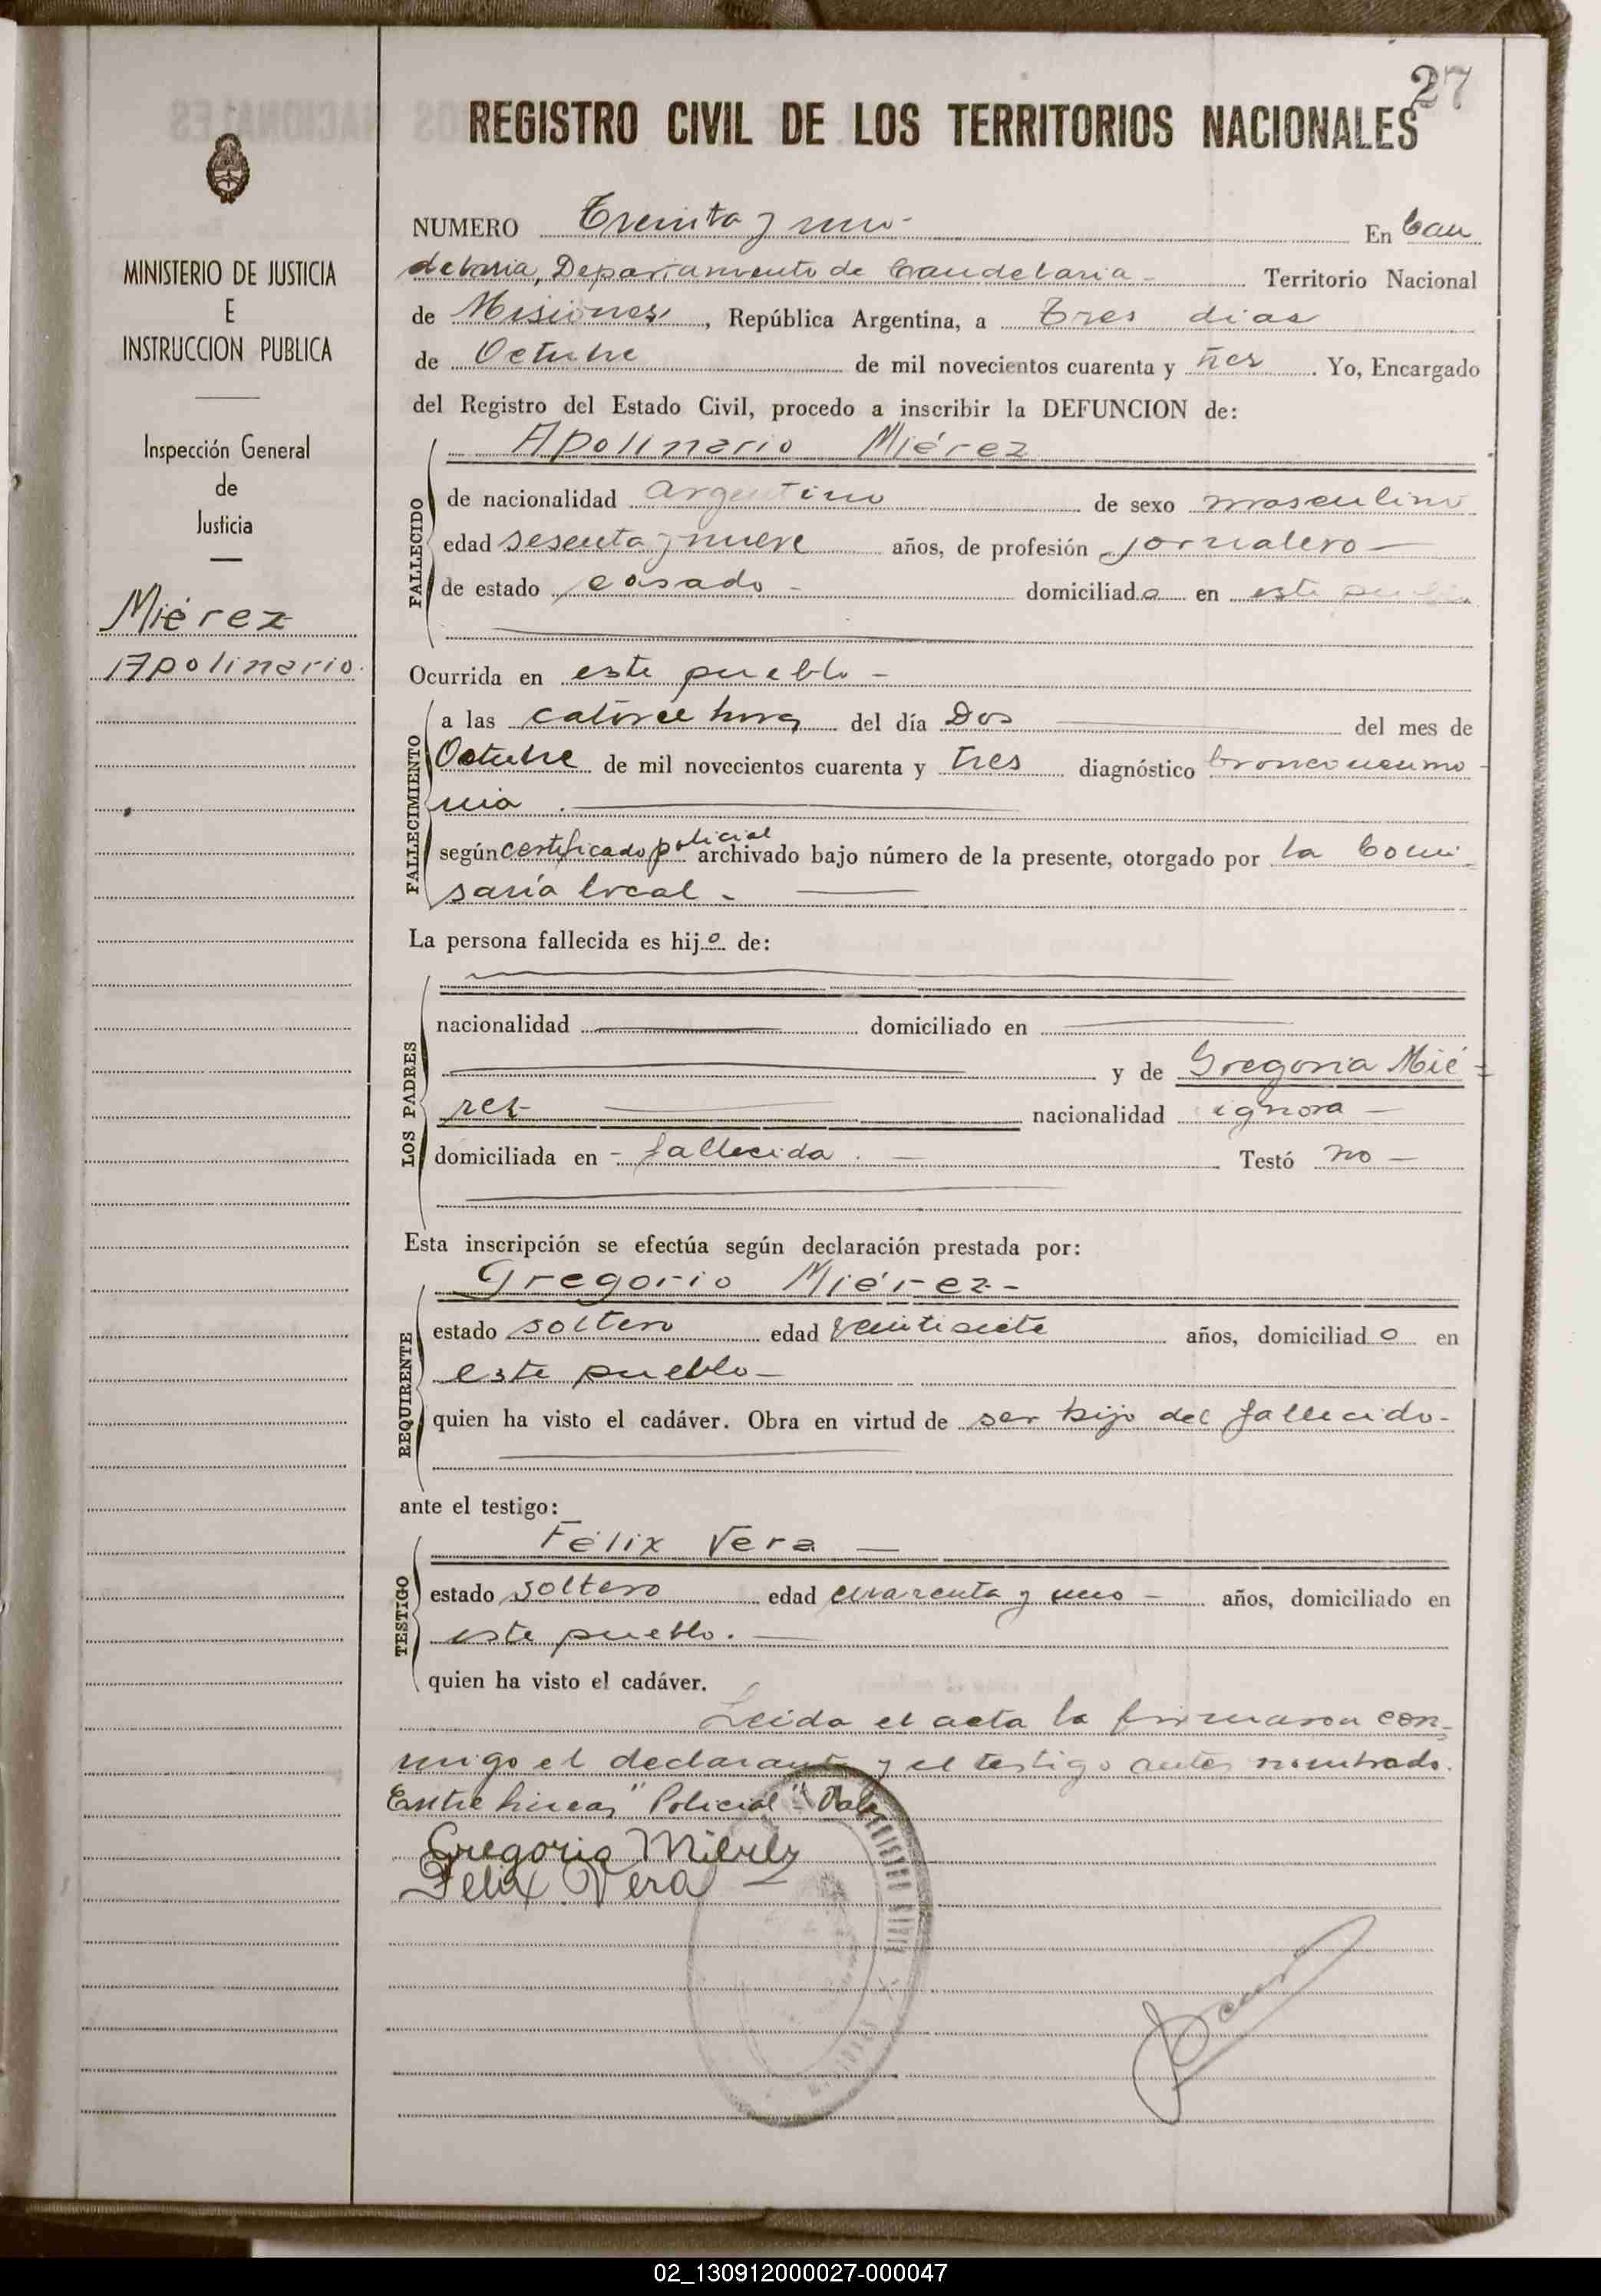 27
REGISTRO CIVIL DE LOS TERRITORIOS NACIONALES
MINISTERIO DE JUSTICIA
E
INSTRUCCION PUBLICA
Inspección General
de
Justicia
Miérez
Apolinario
NUMERO Treinta y uno En Can
delaria, Departamento de Candelaria Territorio Nacional
de Misiones, República Argentina, a tres dias
de Octubre de mil novecientos cuarenta y tres. Yo, Encargado
del Registro del Estado Civil, procedo a inscribir la DEFUNCION de:
Apolinario Miérez
FALLECIDO
de nacionalidad argentino de sexo masculino
edad sesenta y nueve años, de profesión jornalero
de estado casado domiciliado en este pueblo
Ocurrida en este pueblo
FALLECIMIENTO
a las catorce horas del día Dos del mes de
Octubre de mil novecientos cuarenta y tres diagnóstico bronconeumo
nia
según certificado policial archivado bajo número de la presente, otorgado por la Comi
saría local
La persona fallecida es hijo de:
LOS PADRES
nacionalidad domiciliado en
y de Gregoria Mié
rez nacionalidad ignora
domiciliada en fallecida Testó no
Esta inscripción se efectúa según declaración prestada por:
Gregorio Miérez
REQUIRENTE
estado soltero edad veintisiete años, domiciliado en
este pueblo
quien ha visto el cadáver. Obra en virtud de ser hijo del fallecido
ante el testigo:
Félix Vera
TESTIGO
estado soltero edad cuarenta y uno años, domiciliado en
este pueblo.
quien ha visto el cadáver.
Leida el acta la firmaron con
migo el declarante y el testigo antes nombrado.
Entre lineas "Policial" Vale
Gregorio Mierez
Felix Vera
02_130912000027-000047